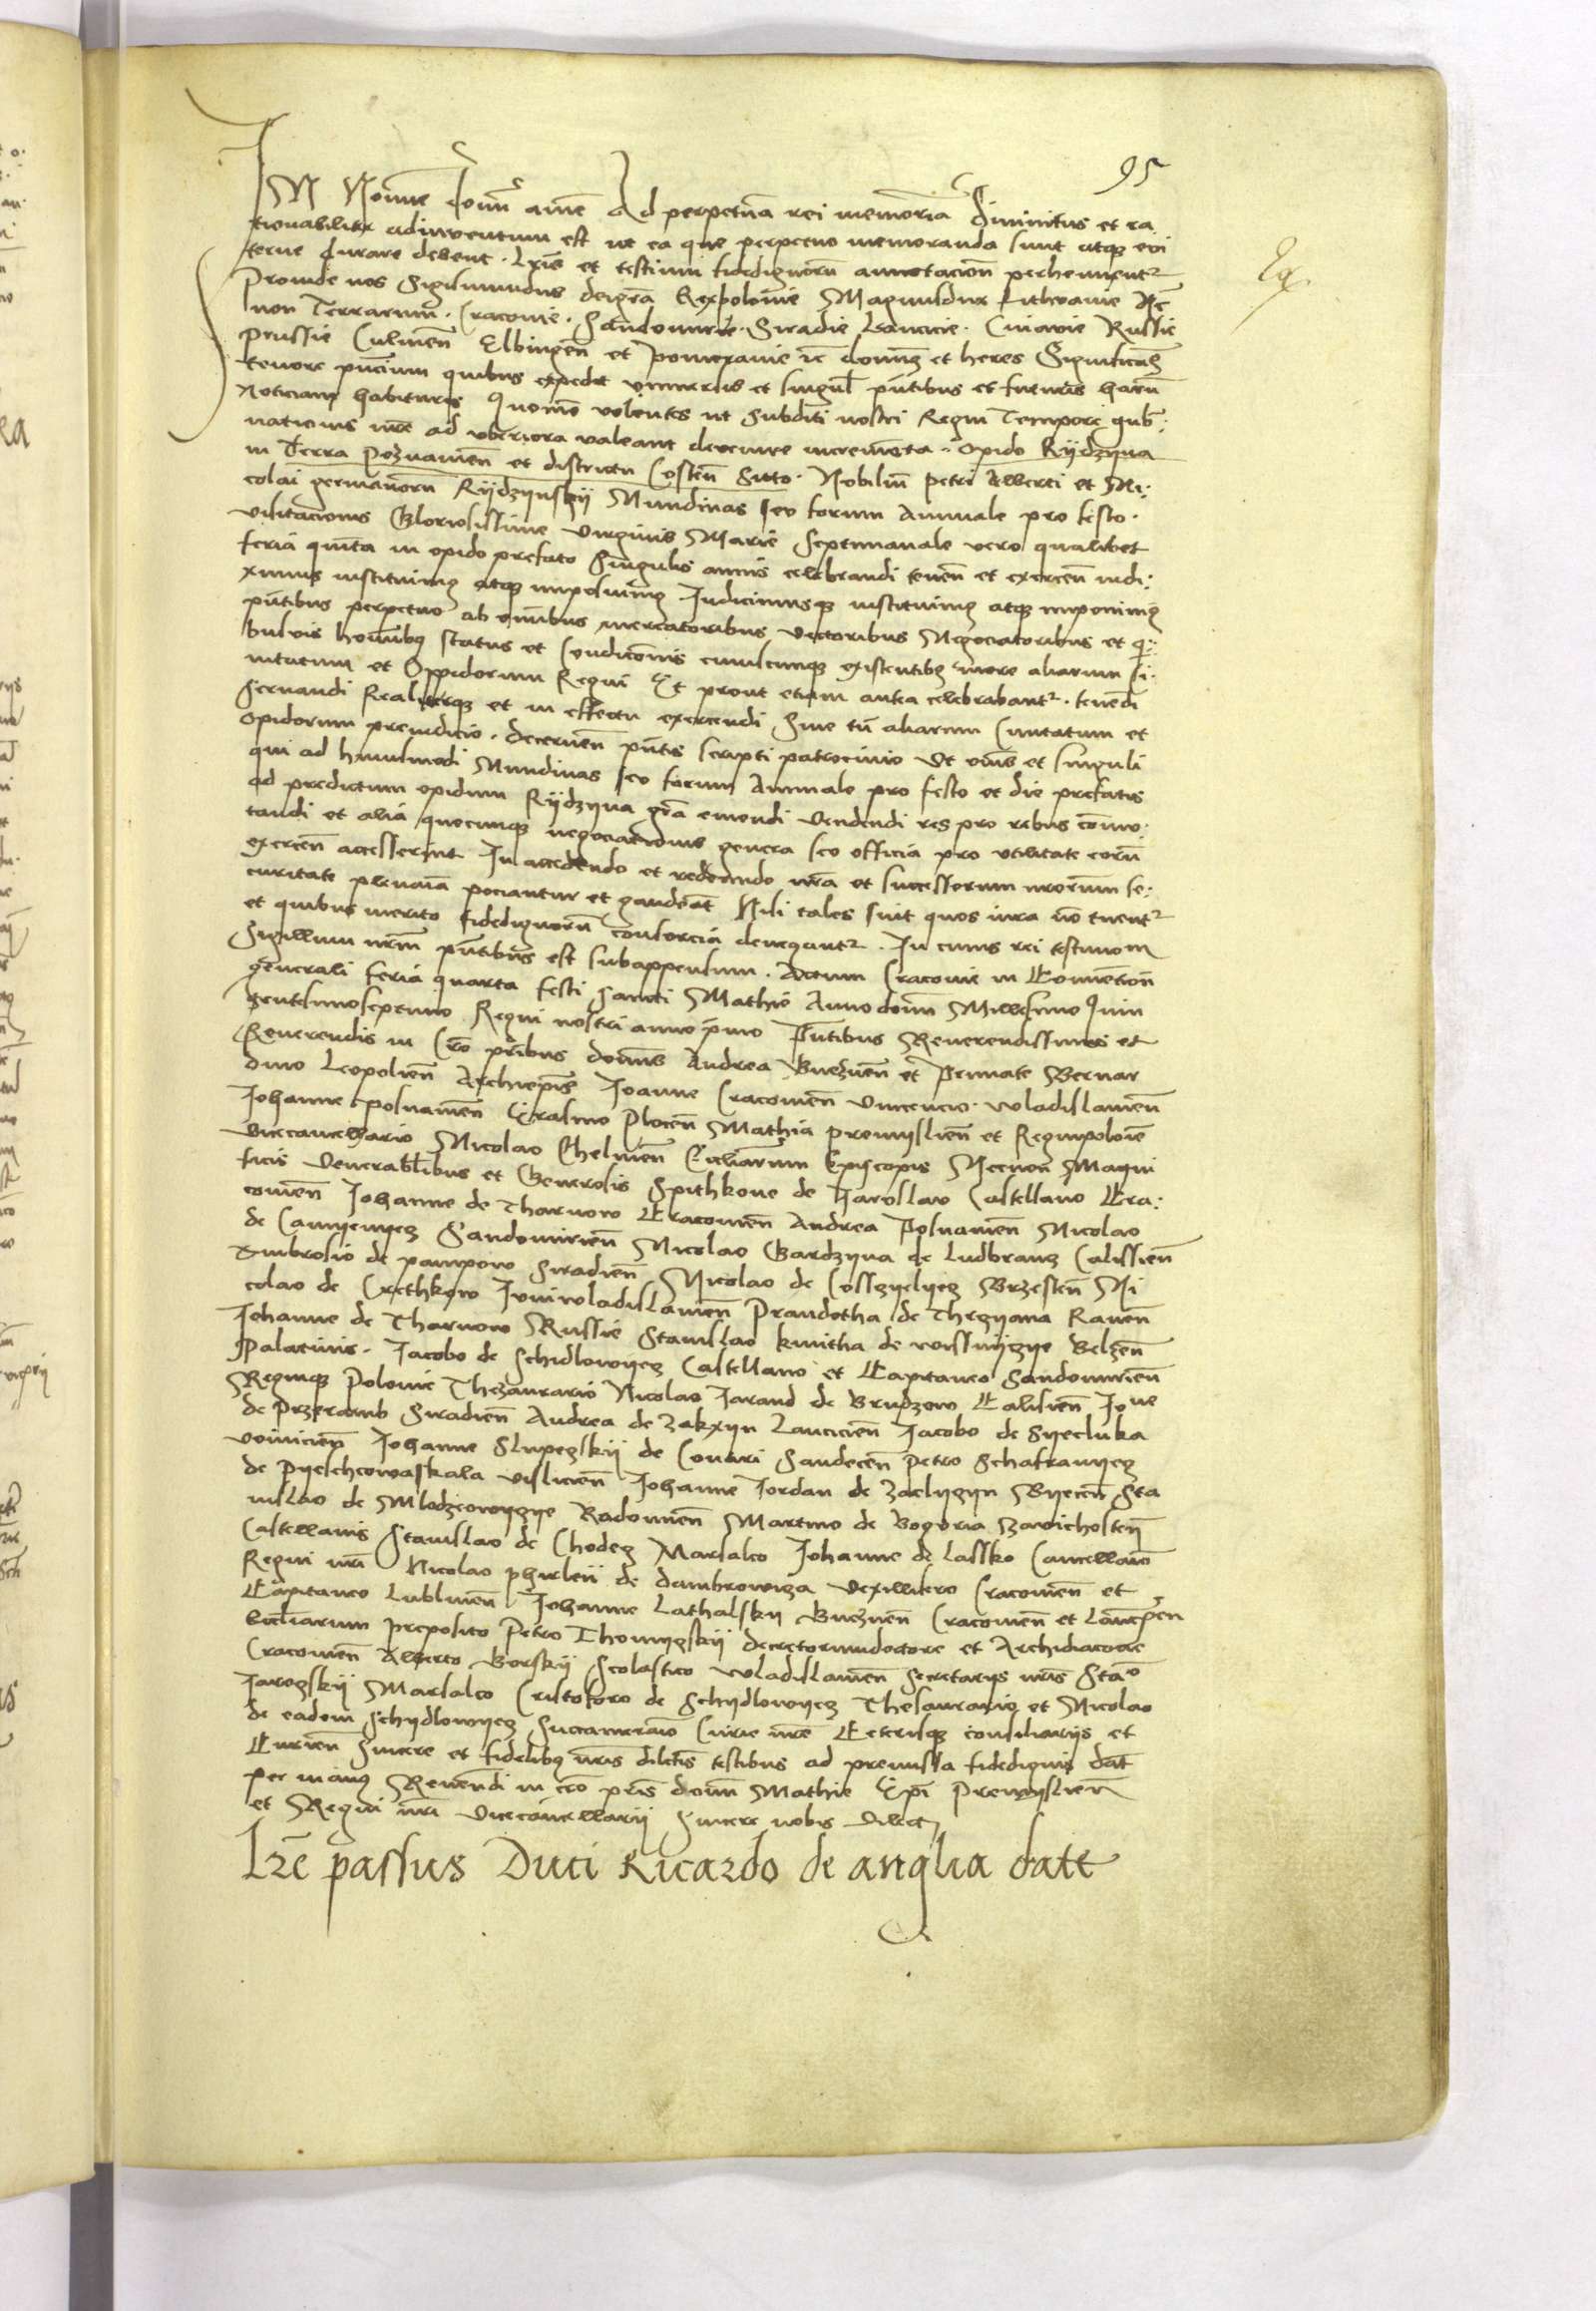 95
IN Nomine domini amen Ad perpetuam rei memoriam Diuinitus et ra
tionabiliter adinuentum est ut ea que perpetuo memoranda sunt atque eui
terne durare debent. Lris et testium fidedignorum annotacion perhennentur
Proinde nos Sigismundus dei gra Rex polonie Magnusdux Lithvanie Nec
non Terrarum. Cracouie. Sandomirie. Siradie Lancicie. Cuiavie Russie
Prussie Culmen Elbingen et pomeranie etc dominus et heres Significamus
tenore pntium quibus expedit vniuersis et singulis pntibus et futuris harum
Noticiam habituris Quomodo volentes ut subditi nostri Regni Tempore gub:
nationis nre ad vberiora valeant devenire incrementa. Opido Rijdzyna
in Terra Poznanien et districtu Costen Sito. Nobilium petri Alberti et Ni:
colai germanorum Rijdzynskij Nundinas seu forum Annuale pro festo.
visitacionis Gloriosissime virginis Marie Septimanale vero qualibet
feria quinta in opido prefato Singulis annis celebrandi tenen et exercen indi:
ximus instituimus atque imposuimus Indicimusque instituimus atque imponimus
pntibus perpetuo ab omnibus mercatoribus vectoribus Negociatoribus et qui:
busuis hominibus status et condicionis cuiuscunque existentibus more aliarum Ci:
uitatum et Oppidorum Regni Et prout etiam antea celebrabantur. tenendi
seruandi Realiterque et in effectu exercendi Sine tn aliarum Ciuitatum et
opidorum preiudicio. decernen pntis scripti patrocinio Vt omnes et singuli
qui ad huiusmodi Nundinas seu forum Annuale pro festo et die prefatis
ad predictum opidum Rijdzyna gra emendi vendendi res pro rebus commu:
tandi et alia quecunque negociationis genera seu officia pro vtilitate eorum
exercen accesserint In accedendo et redeundo nra et successorum nrorum se:
curitate plenaria pociantur et gaudeat Nisi tales sint quos iura non tuentur
et quibus merito fidedignorum consorcia denegantur. In cuius rei testimom
Sigillum nrm pntibus est subappensum. Actum Cracouie in Conuention
generali feria quarta festi Sancti Mathie Anno domini Millesimo Quin
gentesimoseptimo Regni nostri anno primo Pntibus Reuerendissimis et
Reuerendis in Cro pribus dominis Andrea Gneznen et Primate Bernar
dino Leopolien Archiepis Joanne Cracouien Vincencio. Wladislauien
Johanne posnanien Erasmo Plocen Mathia premyslien et Regni polonie
Vicecancellario Nicolao Chelmen Ecclesiarum Episcopis Necnon Magni
ficis Venerabilibus et Generosis Spithkone de Jaroslaw Castellano Cra:
couien Johanne de Tharnow Cracouien Andrea Posnanien Nicolao
de Camyenyecz Sandomirien Nicolao Gardzyna de Ludbrancz Calissien
Ambrosio de pampow Siradien Nicolao de Cosszyelyecz Brzesten Ni
colao de Crethkow Juniwladislauien Prandotha de Threyana Rauen
Johanne de Tharnow Russie Stanislao kmitha de wissnyczye Belzen
Palatinis. Jacobo de Schidlowyecz Castellano et Capitaneo Sandomirien
Regnique Polonie Thezaurario Nicolao Jarand de Brudzow Calisien Jone
de Przeramb Siradien Andrea de Zakrzyn Lancicien Jacobo de Syecluka
voinicien Johanne Slupeczskij de Conari Sandecen Petro Schafranyecz
de Pyeschcowaskala vislicien Johanne Jordan de Zaclyczyn Byecen Sta
nislao de Mlodzeowyczye Radomien Martino de Bogoria Zawichosten
Castellanis Stanislao de Chodecz Marsalco Johanne de Lassko Cancellario
Regni nri Nicolao phirleij de Dambrowiza Vexillifero Cracouien et
Capitaneo Lublinen Johanne Lathalskij Gneznen Cracouien et Lancicien
Ecclesiarum preposito Petro Thomyczskij decretorumdoctore et Archidiacono
Cracouien Alberto Gorskij Scolastico Wladislauien Secretarys nris Stao
Jaroczskij Marsalco Cristoforo de Schydlowyecz Thesaurario et Nicolao
de eadem Schydlowyecz Succamerario Curie nre Ceterisque consiliarijs et
Curien Sincere et fidelibus nris dilectis testibus ad premissa fidedignis dat
per manus Reuerendi in cro pris domini Mathie Epi Premyslien
et Regni nri Vicecancellarij Sincere nobis dilecti
Lre passus Duci Ricardo de anglia date